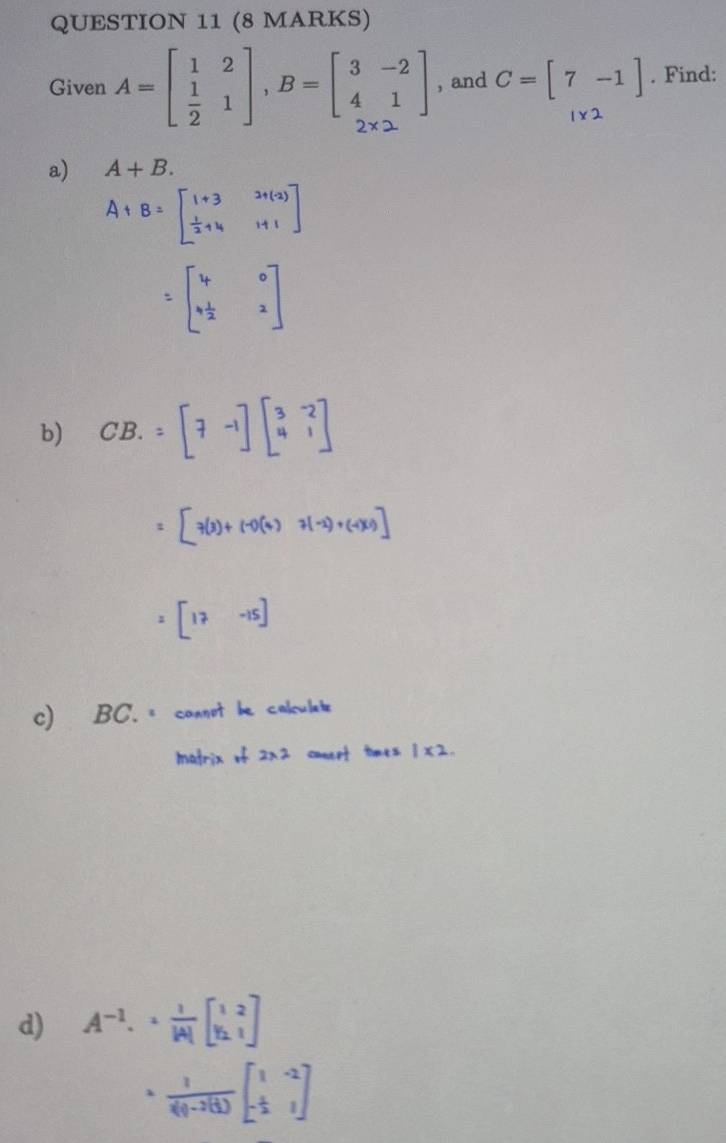 QUESTION 11 (8 MARKS)
Given A = [1 2; 1/2 1], B = [3 -2; 4 1], and C = [7 -1]. Find:
2×2 1×2
a) A + B.
A + B = [1+3 2+(-2); 1/2+4 1+1]
= [4 0; 4 1/2 2]
b) CB. = [7 -1] [3 -2; 4 1]
= [7(3) + (-1)(4) 7(-2) + (-1)(1)]
= [17 -15]
c) BC. = cannot be calculate
matrix of 2×2 times 1×2.
d) A⁻¹. = 1/|A| [1 2; 1/2 1]
= 1/(1(1)-2(1/2)) [1 -2; -1/2 1]